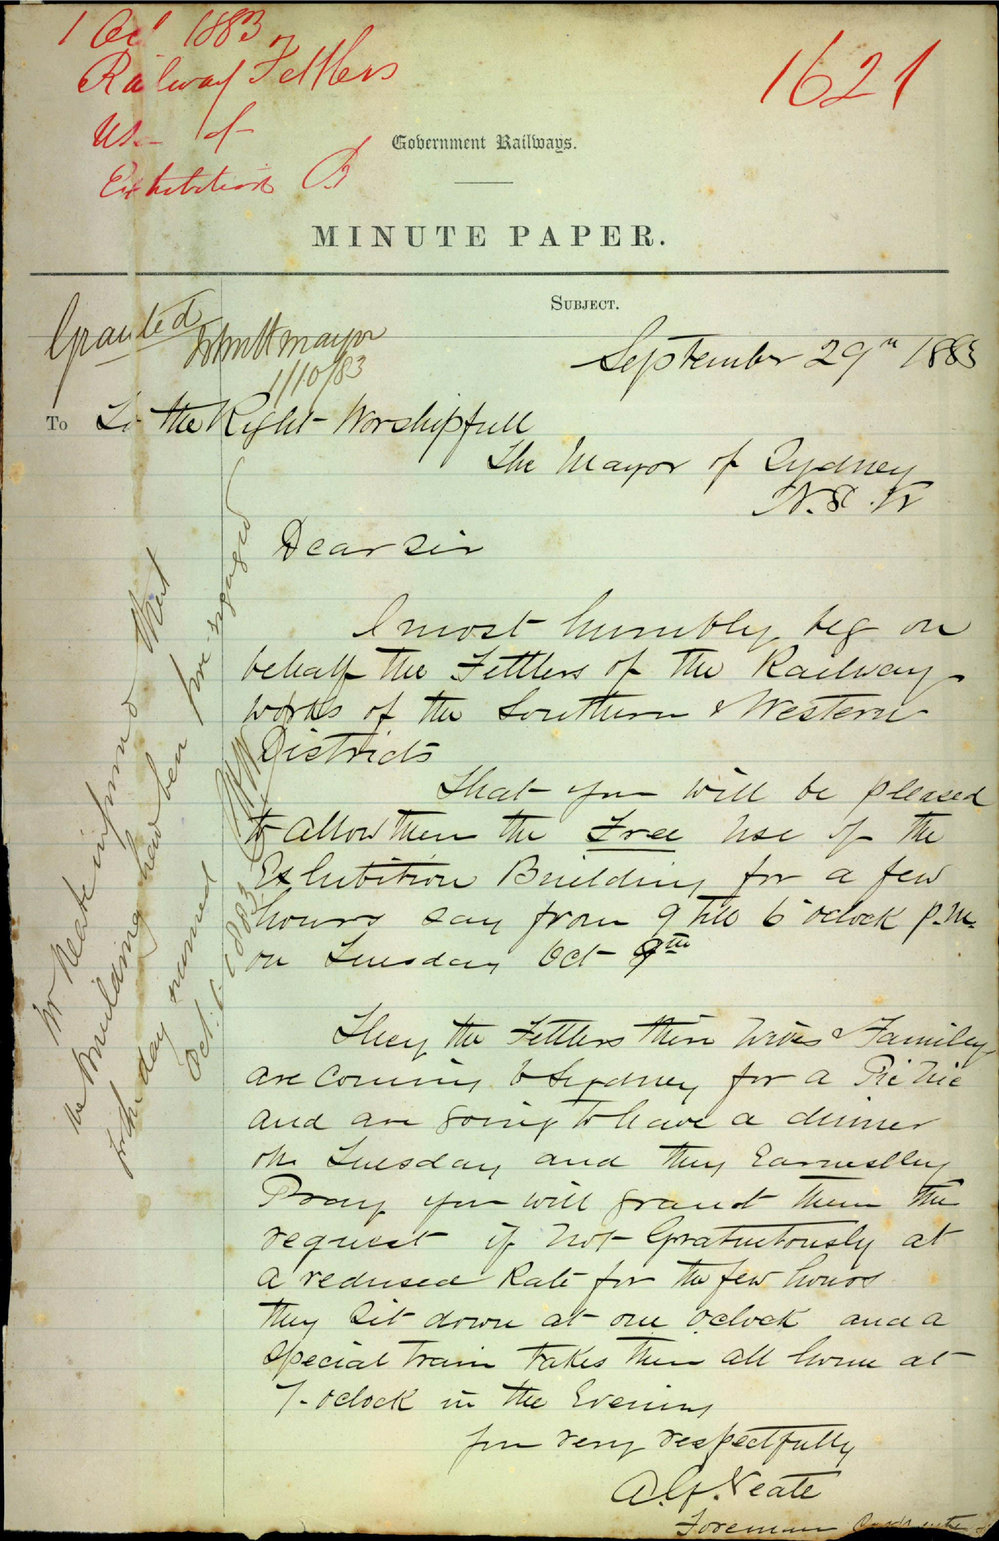 1 Oct 1883
Railway Fettlers
Use of
Exhibition B
1621
Government Railways.
MINUTE PAPER.
SUBJECT.
Granted
mayor
1/10/83
September 29th 1883
To To the Right Worshipfull
The Mayor of Sydney
N.S.W
Dear Sir
I most humbly beg on
behalf the Fettlers of the Railway
works of the Southern & Western
Districts
That you will be pleased
to allow them the Free use of the
Exhibition Building for a few
hours say from 9 till 6 oclock p.m.
on Tuesday Oct 9th
They the Fettlers their Wives & Familey
are coming to Sydney for a Pic Nic
and are going to have a dinner
on Tuesday and they Earnestley
Pray you will grant them the
request if not Gratuitously at
a reduced Rate for the few hours
they sit down at one oclock and a
special train takes them all home at
7-oclock in the Evening
your very respectfully
A. G. Neate
Foreman
Mr Neate informed that
the building has been pre-engaged
for the day named
Oct. 1. 1883